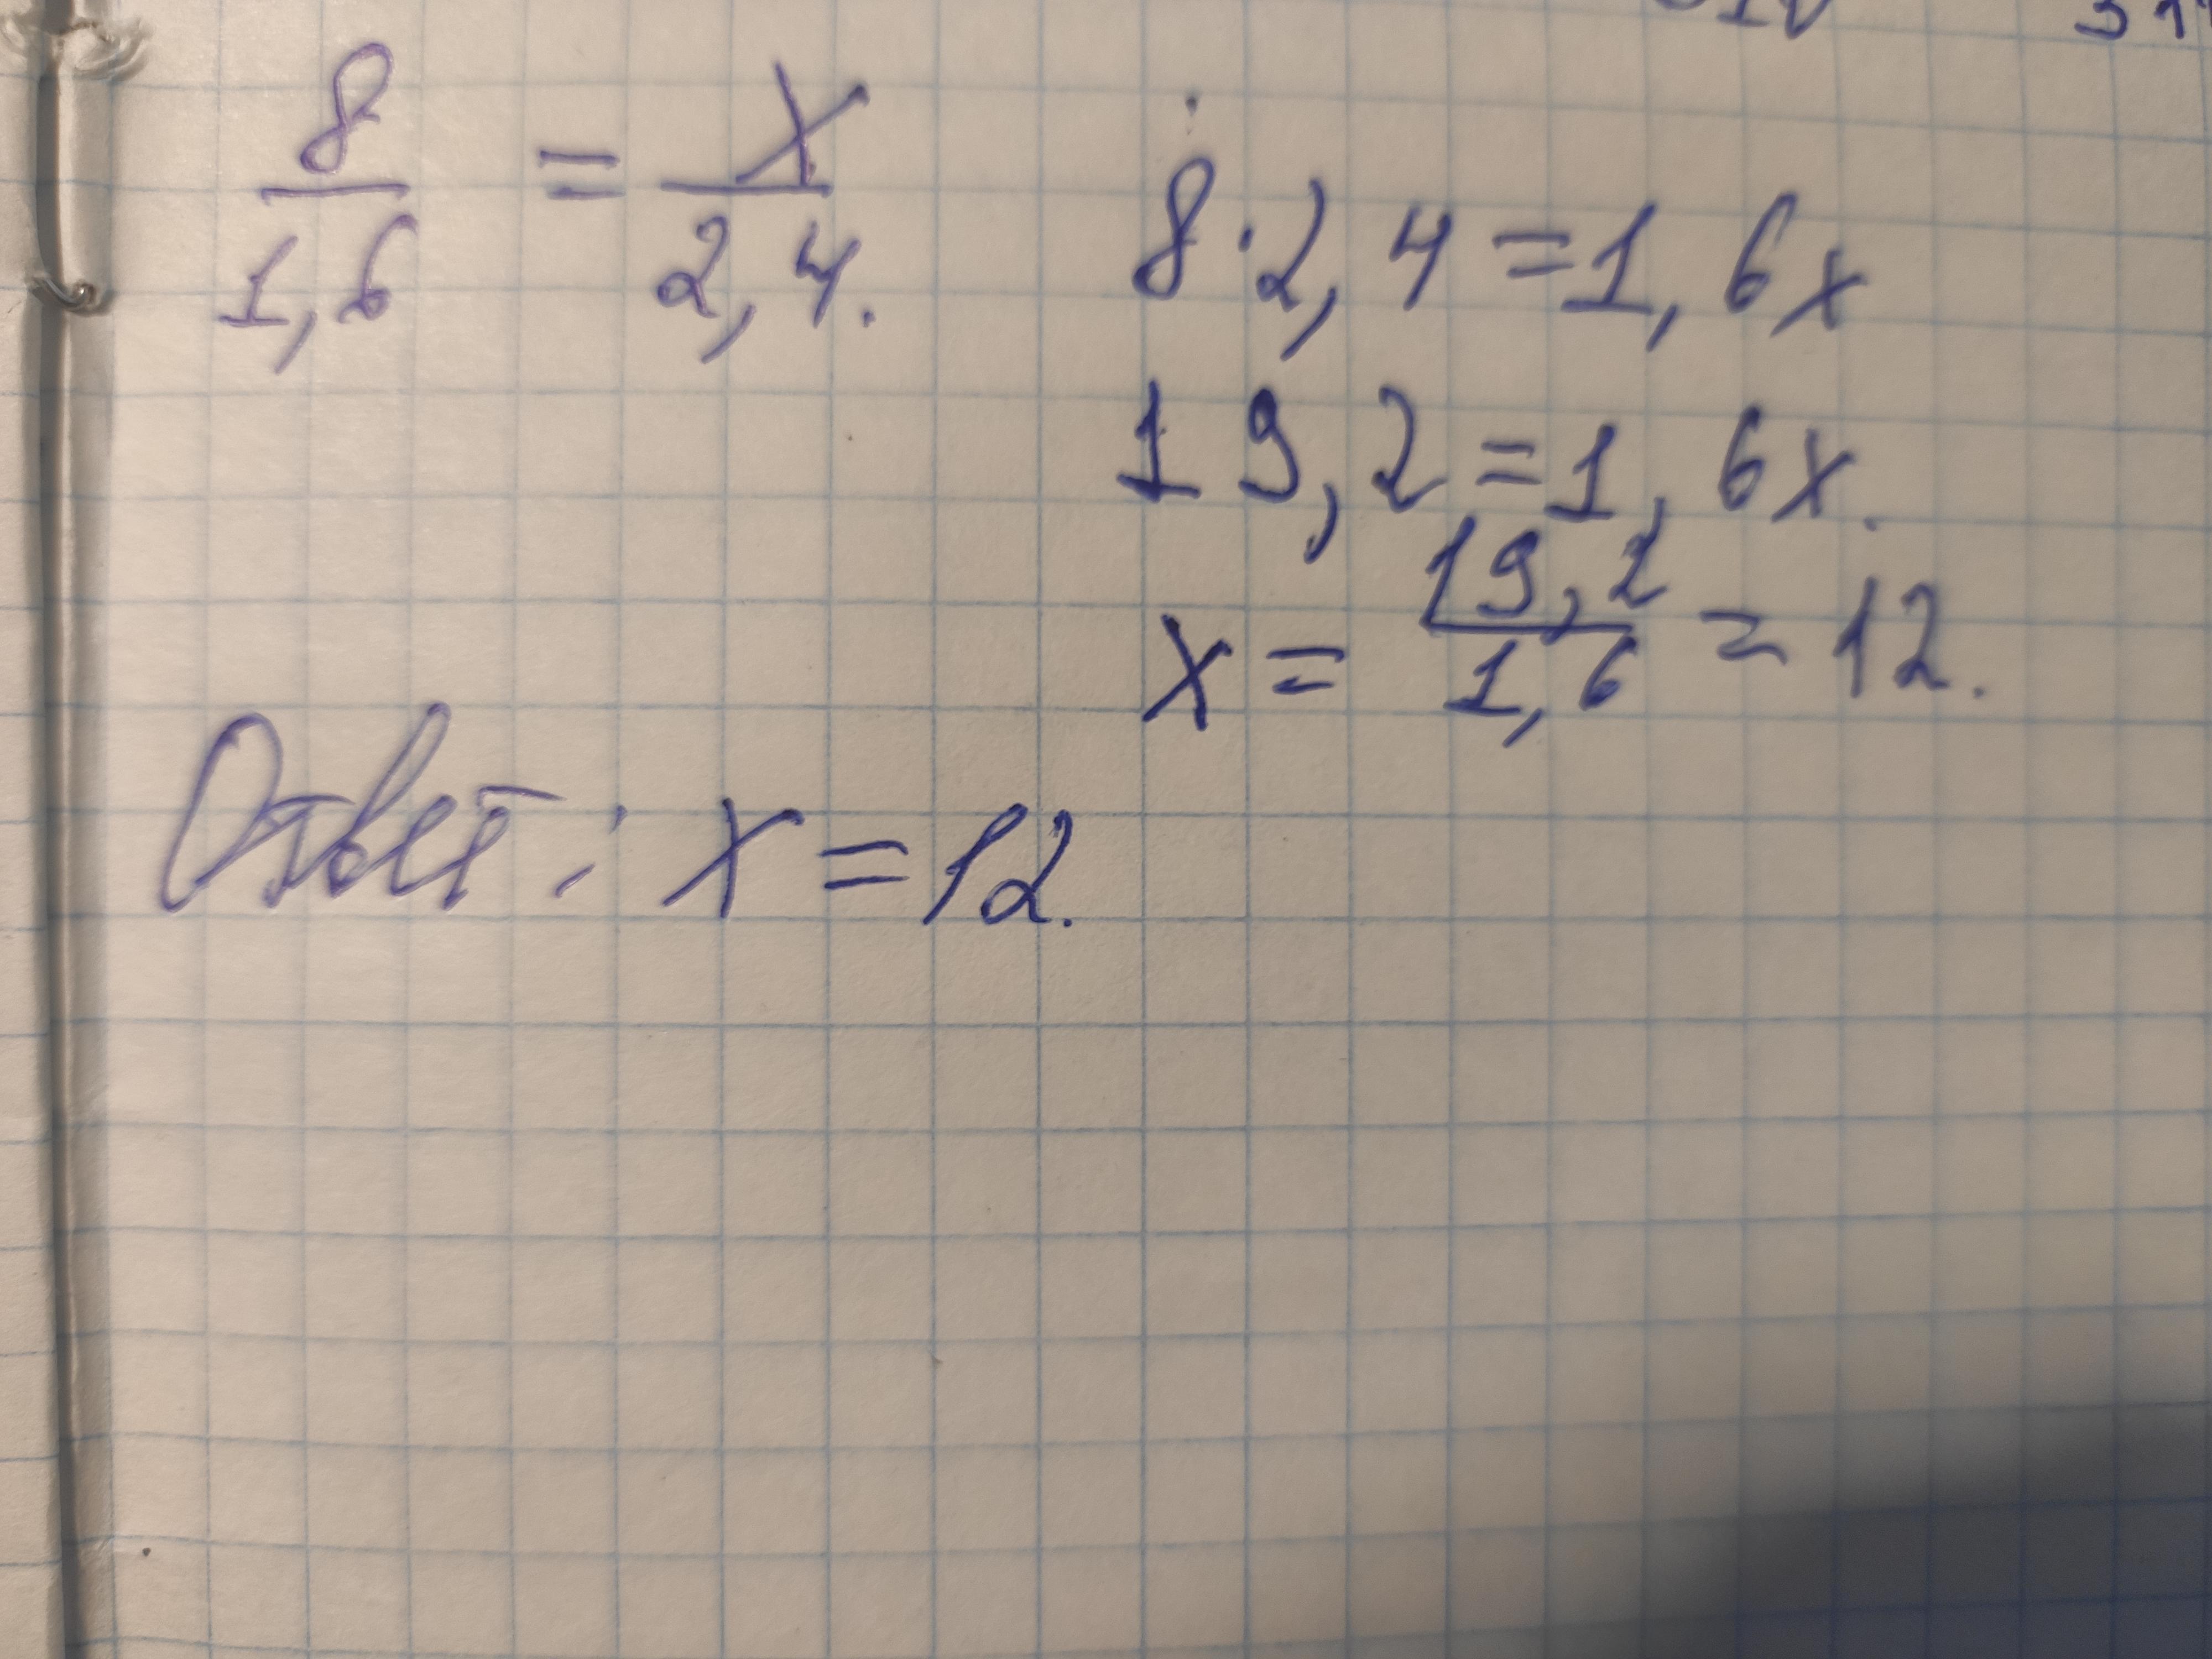 8/1,6 = x/2,4.
8·2,4=1,6x
19,2=1,6x.
x = 19,2/1,6 = 12.
Ответ: x=12.